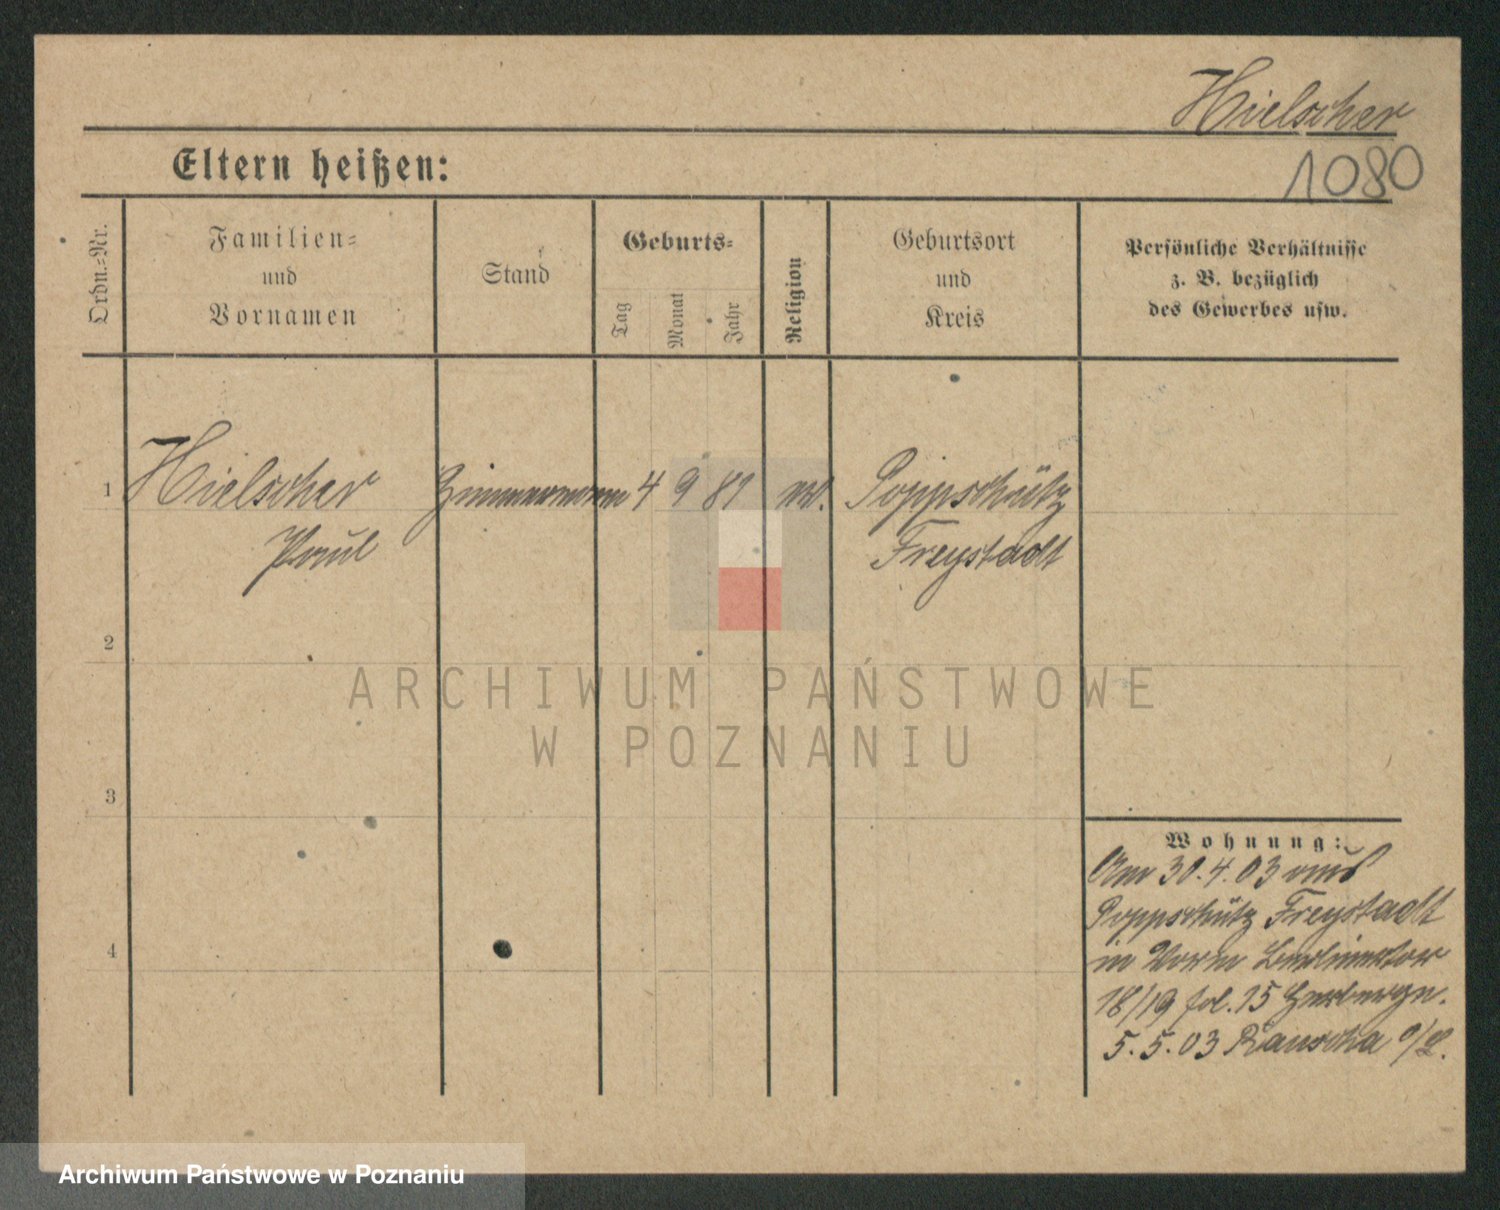 Hielscher
1080
Eltern heißen:
Ordn.-Nr.
Familien-
und
Vornamen
Stand
Geburts-
Tag
Monat
Jahr
Religion
Geburtsort
und
Kreis
Persönliche Verhältnisse
z. B. bezüglich
des Gewerbes usw.
1 Hielscher Zimmermann 4 9 81 Poppschütz
Paul Freystadt
2
3
4
Wohnung:
Am 30.4.03 aus
Poppschütz Freystadt
in Vorm Berlinertor
18/19 fol. 15 Herberge.
5.5.03 Rauscha o/L.
ARCHIWUM PAŃSTWOWE
W POZNANIU
Archiwum Państwowe w Poznaniu